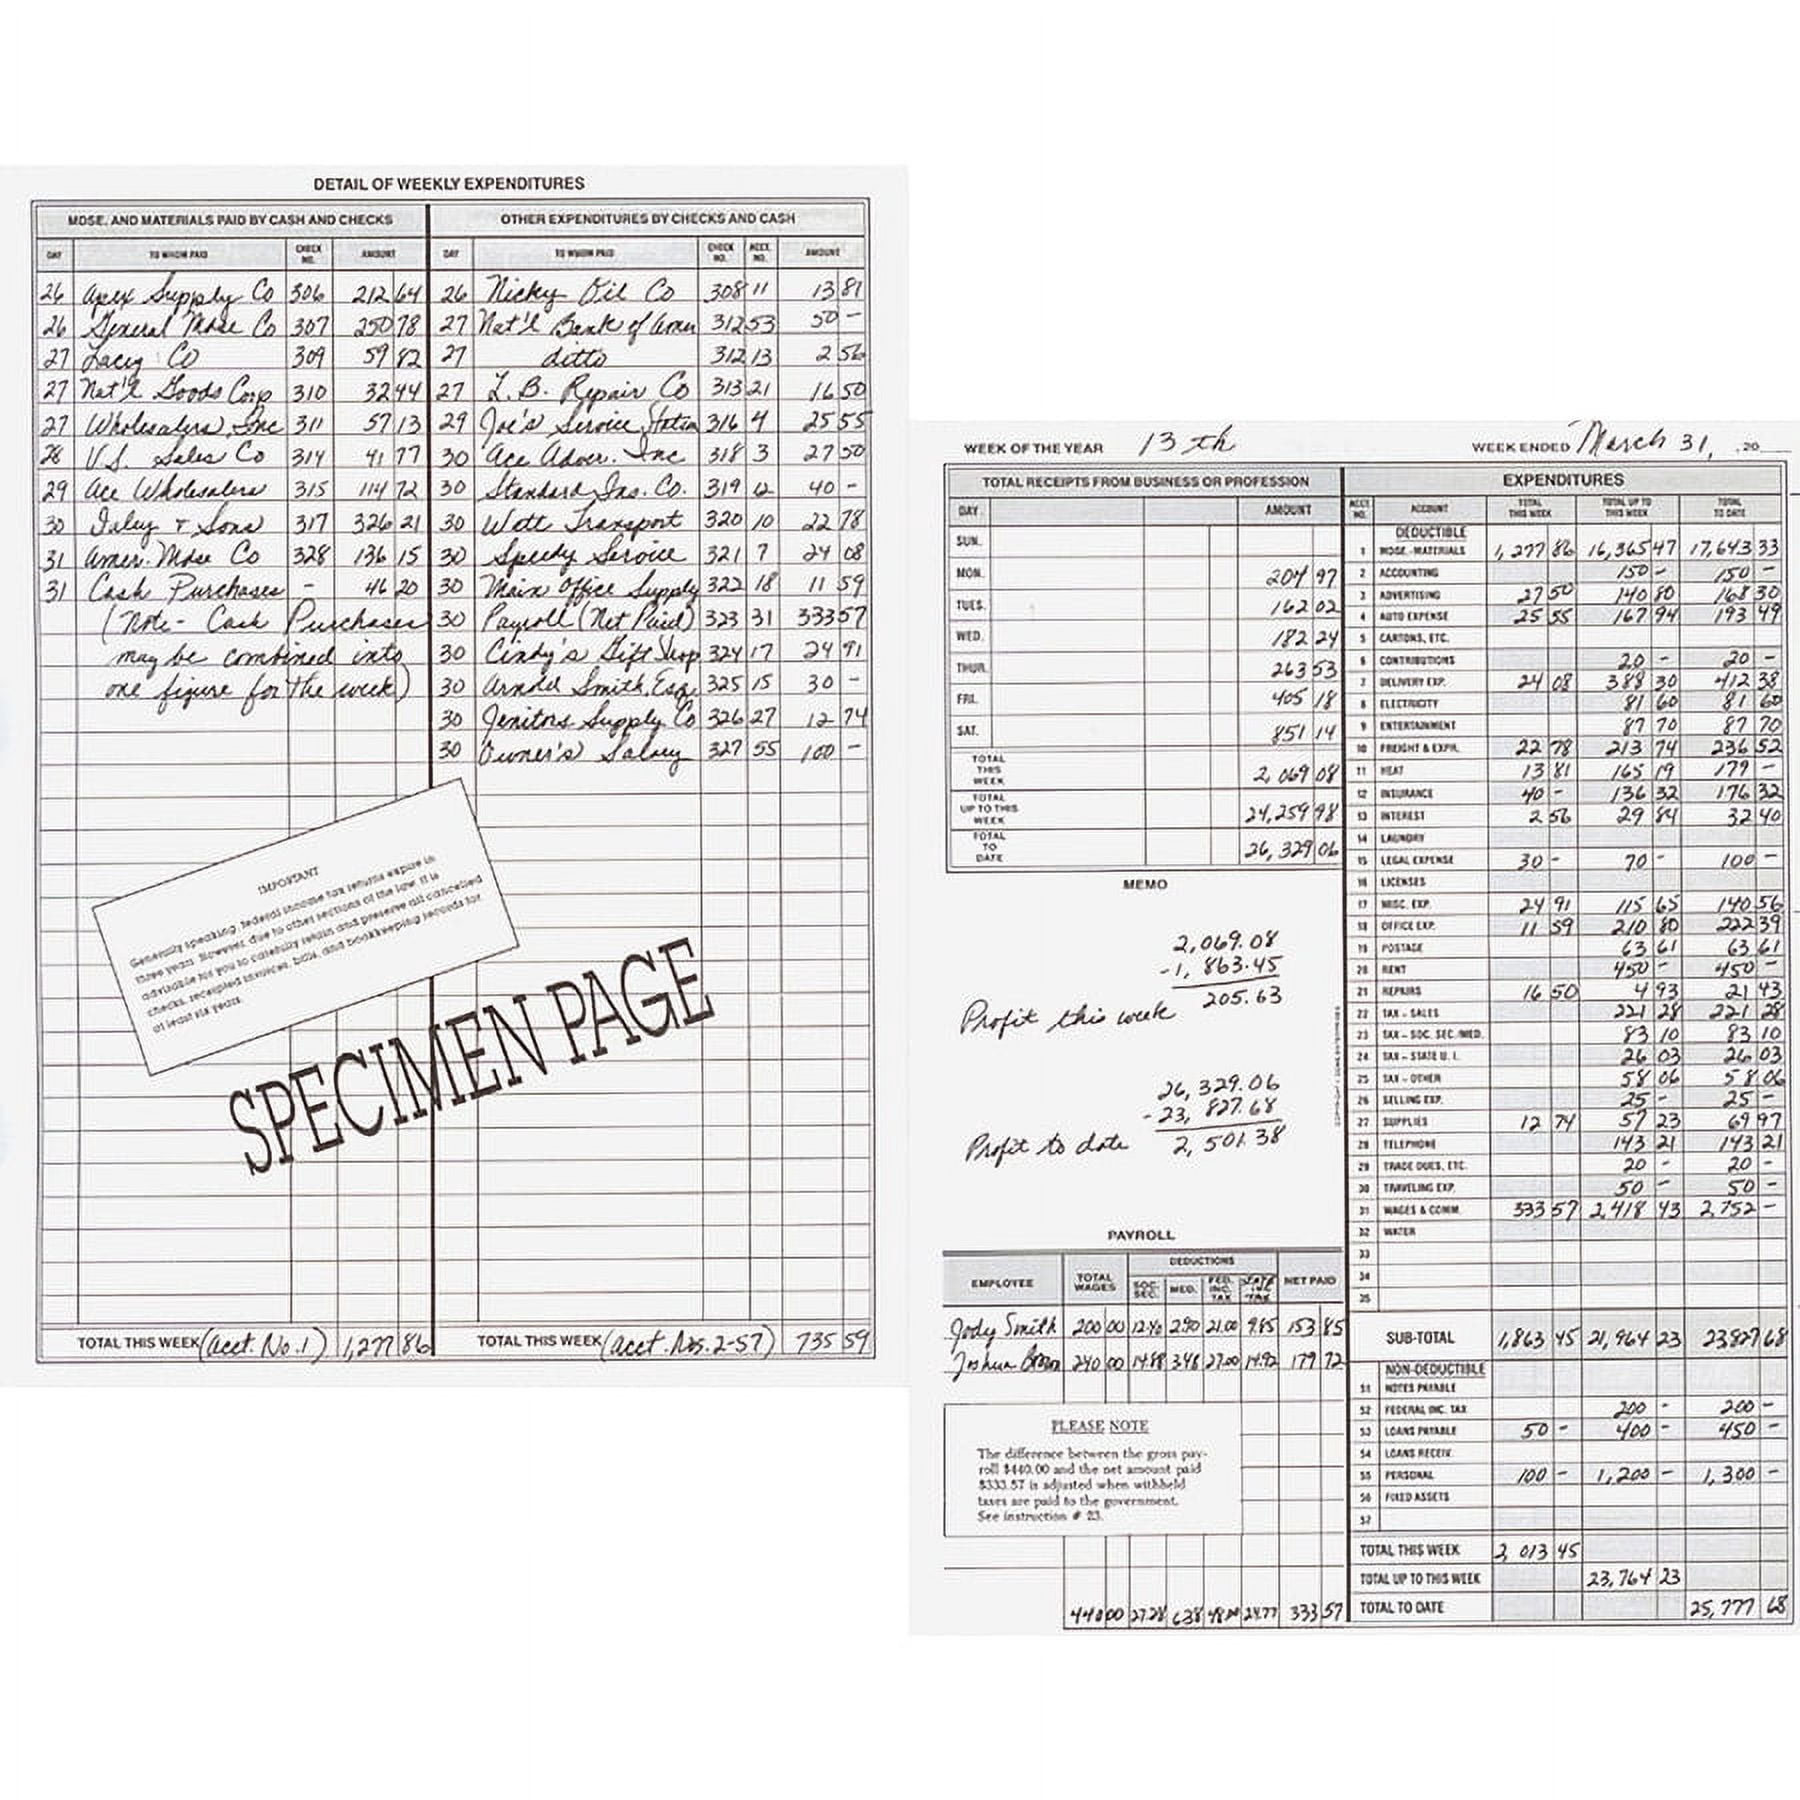 DETAIL OF WEEKLY EXPENDITURES
MDSE. AND MATERIALS PAID BY CASH AND CHECKS
DAY TO WHOM PAID CHECK NO. AMOUNT
26 Apex Supply Co 306 212 64
26 General Mdse Co 307 250 78
27 Lacey Co 309 59 82
27 Nat'l Goods Corp 310 32 44
27 Wholesalers, Inc 311 57 13
28 U.S. Sales Co 314 41 77
29 Ace Wholesalers 315 114 72
30 & Sons 317 326 21
31 Amer. Mdse Co 328 136 15
31 Cash Purchases - 46 20
(Note - Cash Purchases
may be combined into
one figure for the week)
TOTAL THIS WEEK (Acct. No. 1) 1,277 86
OTHER EXPENDITURES BY CHECKS AND CASH
DAY TO WHOM PAID CHECK NO. ACCT. NO. AMOUNT
26 Nicky Oil Co 308 11 13 81
27 Nat'l Bank of Amer 312 53 50 -
27 ditto 312 13 2 56
27 L.B. Repair Co 313 21 16 50
29 Joe's Service Station 316 4 25 55
30 Ace Adver. Inc 318 3 27 50
30 Standard Ins. Co. 319 12 40 -
30 Watt Transport 320 10 22 78
30 Speedy Service 321 7 24 08
30 Main Office Supply 322 18 11 59
30 Payroll (Net Paid) 323 31 333 57
30 Cindy's Gift Shop 324 17 24 91
30 Arnold Smith, Esq. 325 15 30 -
30 Jenitors Supply Co 326 27 12 74
30 Owner's Salary 327 55 100 -
TOTAL THIS WEEK (Acct. Nos. 2-57) 735 59
IMPORTANT
Generally speaking, federal income tax returns expire in
three years. However, due to other sections of the law, it is
advisable for you to carefully retain and preserve all cancelled
checks, receipted invoices, bills, and bookkeeping records for
at least six years.
SPECIMEN PAGE
WEEK OF THE YEAR 13th
WEEK ENDED March 31, , 20
TOTAL RECEIPTS FROM BUSINESS OR PROFESSION
DAY AMOUNT
SUN.
MON. 204 97
TUES. 162 02
WED. 182 24
THUR. 263 53
FRI. 405 18
SAT. 851 14
TOTAL THIS WEEK 2,069 08
TOTAL UP TO THIS WEEK 24,259 98
TOTAL TO DATE 26,329 06
MEMO
2,069.08
-1,863.45
Profit this week 205.63
26,329.06
-23,827.68
Profit to date 2,501.38
PAYROLL
EMPLOYEE TOTAL WAGES DEDUCTIONS SOC. SEC. MED. FED. INC. TAX STATE INC TAX NET PAID
Jody Smith 200 00 12.40 2.90 21.00 9.85 153 85
Joshua Brown 240 00 14.88 3.48 27.00 14.92 179 72
PLEASE NOTE
The difference between the gross pay-
roll $440.00 and the net amount paid
$333.57 is adjusted when withheld
taxes are paid to the government.
See instruction # 23.
440 00 27.28 6.38 48.00 24.77 333 57
EXPENDITURES
ACCT. NO. ACCOUNT TOTAL THIS WEEK TOTAL UP TO THIS WEEK TOTAL TO DATE
DEDUCTIBLE
1 MDSE.-MATERIALS 1,277 86 16,365 47 17,643 33
2 ACCOUNTING 150 - 150 -
3 ADVERTISING 27 50 140 80 168 30
4 AUTO EXPENSE 25 55 167 94 193 49
5 CARTONS, ETC.
6 CONTRIBUTIONS 20 - 20 -
7 DELIVERY EXP. 24 08 388 30 412 38
8 ELECTRICITY 81 60 81 60
9 ENTERTAINMENT 87 70 87 70
10 FREIGHT & EXPR. 22 78 213 74 236 52
11 HEAT 13 81 165 19 179 -
12 INSURANCE 40 - 136 32 176 32
13 INTEREST 2 56 29 84 32 40
14 LAUNDRY
15 LEGAL EXPENSE 30 - 70 - 100 -
16 LICENSES
17 MISC. EXP. 24 91 115 65 140 56
18 OFFICE EXP. 11 59 210 80 222 39
19 POSTAGE 63 61 63 61
20 RENT 450 - 450 -
21 REPAIRS 16 50 4 93 21 43
22 TAX - SALES 221 28 221 28
23 TAX - SOC. SEC./MED. 83 10 83 10
24 TAX - STATE U. I. 26 03 26 03
25 TAX - OTHER 58 06 58 06
26 SELLING EXP. 25 - 25 -
27 SUPPLIES 12 74 57 23 69 97
28 TELEPHONE 143 21 143 21
29 TRADE DUES, ETC. 20 - 20 -
30 TRAVELING EXP. 50 - 50 -
31 WAGES & COMM. 333 57 2,418 43 2,752 -
32 WATER
33
34
35
SUB-TOTAL 1,863 45 21,964 23 23,827 68
NON-DEDUCTIBLE
51 NOTES PAYABLE
52 FEDERAL INC. TAX 200 - 200 -
53 LOANS PAYABLE 50 - 400 - 450 -
54 LOANS RECEIV.
55 PERSONAL 100 - 1,200 - 1,300 -
56 FIXED ASSETS
57
TOTAL THIS WEEK 2,013 45
TOTAL UP TO THIS WEEK 23,764 23
TOTAL TO DATE 25,777 68